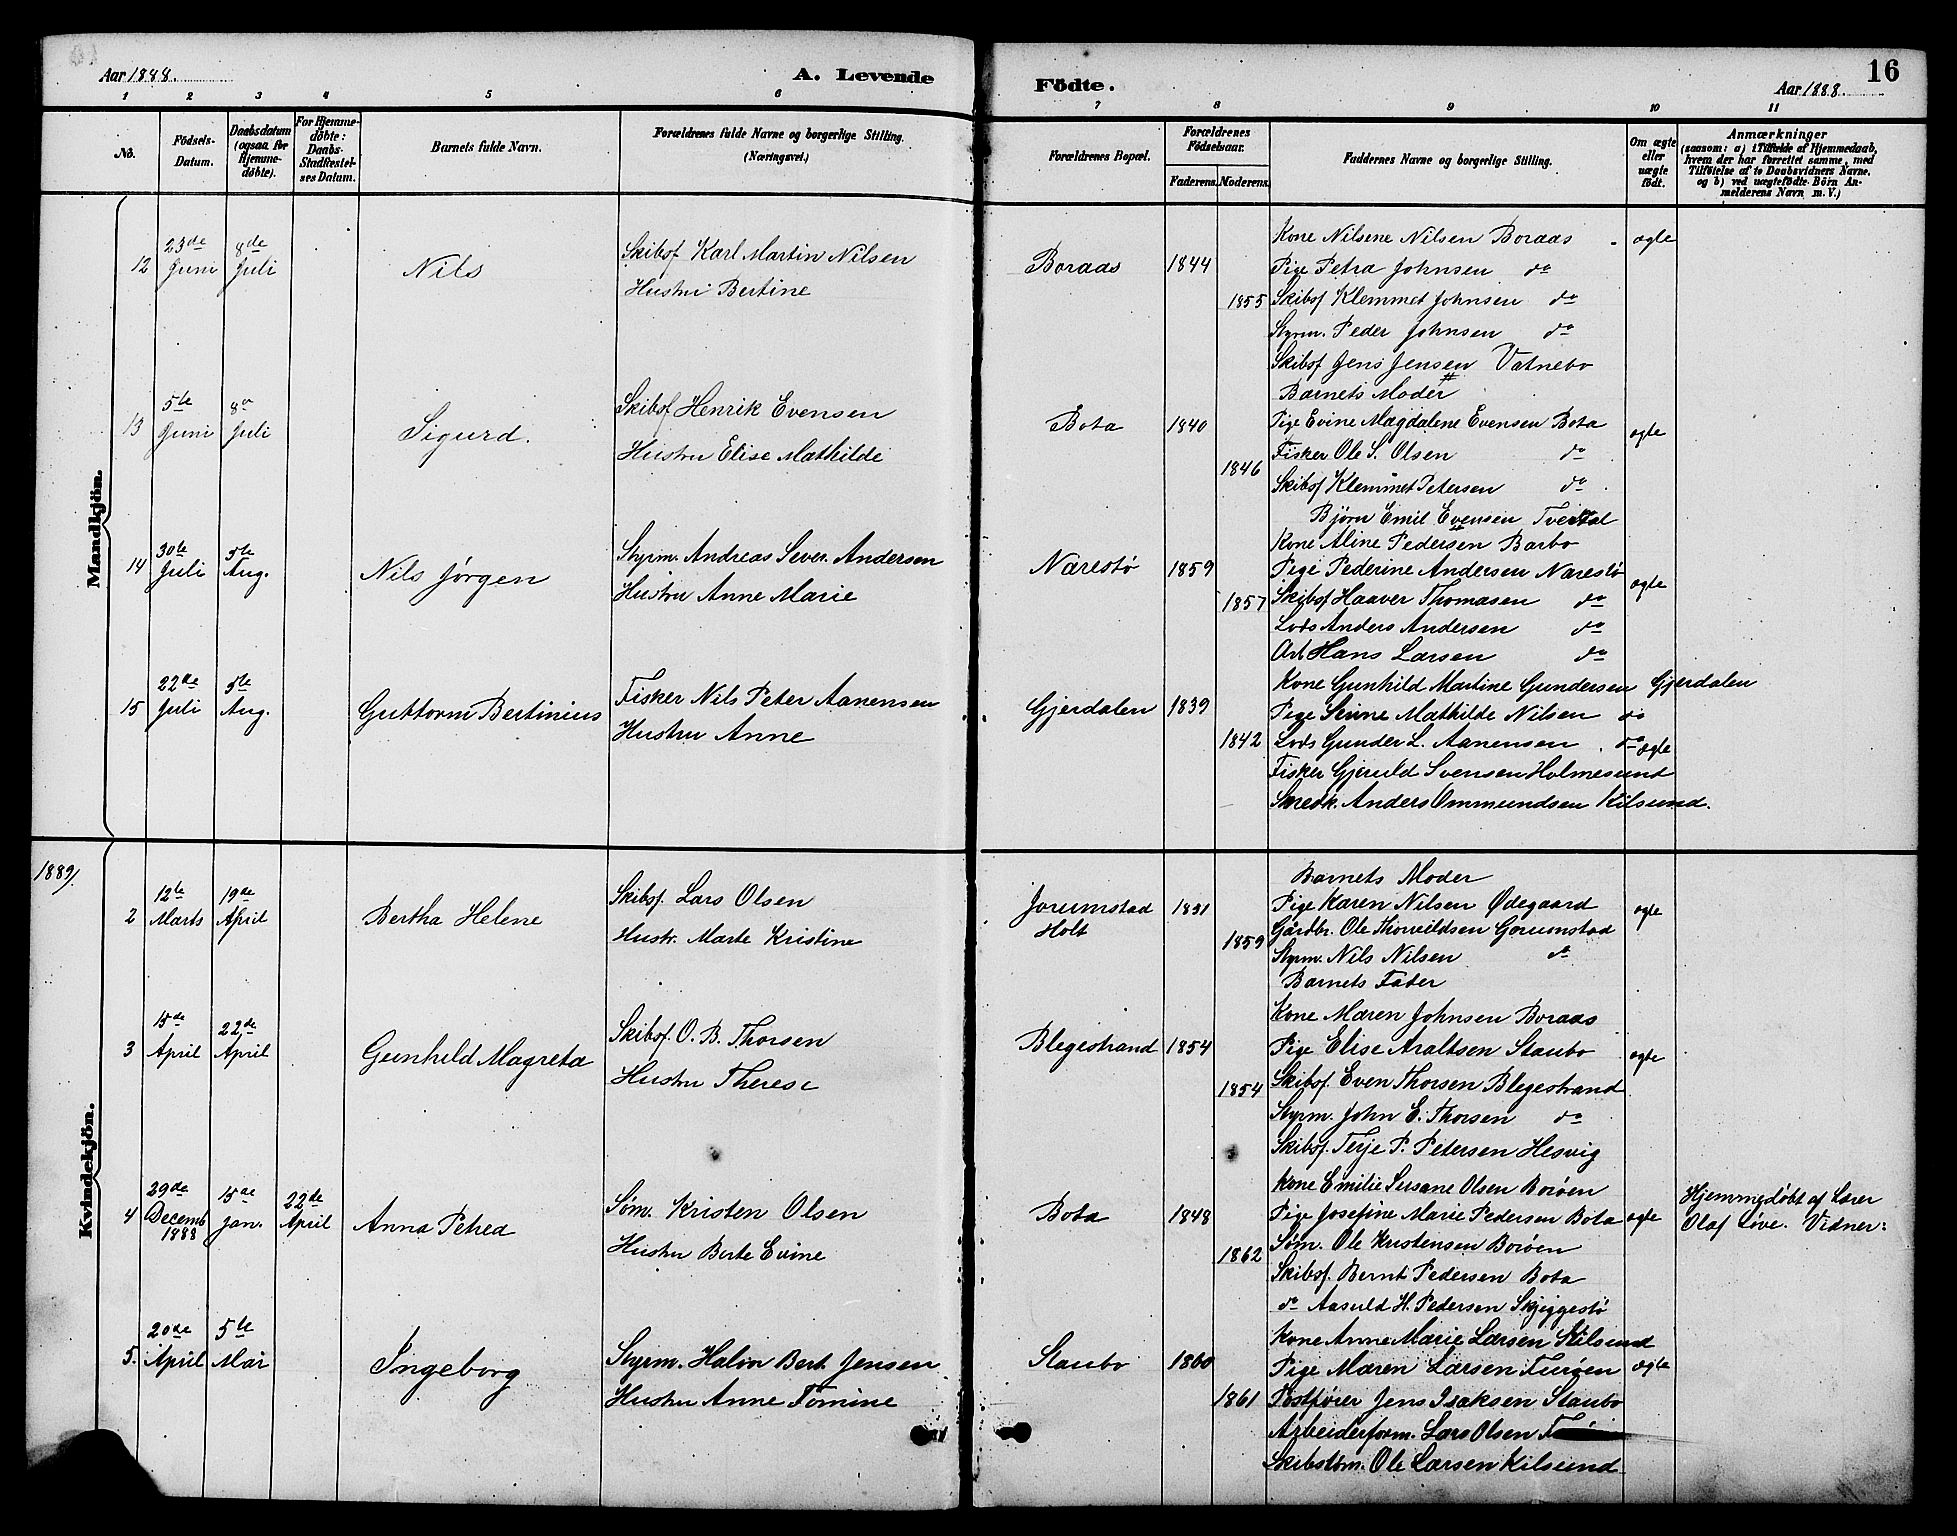 Aar 1888.
A. Levende
Födte.
Aar 1888.
16
1 2 3 4 5 6 7 8 9 10 11
No.
Födsels-
Datum.
Daabsdatum
(ogsaa for
Hjemme-
döbte).
For Hjemme-
döbte:
Daabs-
Stadfæstel-
ses Datum.
Barnets fulde Navn.
Forældrenes fulde Navne og borgerlige Stilling.
(Næringsvei.)
Forældrenes Bopæl.
Forældrenes
Födselsaar.
Faderens. Moderens.
Faddernes Navne og borgerlige Stilling.
Om ægte
eller
uægte
födt.
Anmærkninger
(saasom: a) i Tilfælde af Hjemmedaab,
hvem der har forrettet samme, med
Tilföielse af to Daabsvidners Navne,
og b) ved uægtefödte Börn An-
melderens Navn m. V.)
Mandkjön.
12
23de
Juni
8de
Juli
Nils
Skibsf Karl Martin Nilsen
Hustru Bertine
Boraas
1844
1855
Kone Nilsene Nilsen Boraas
Pige Petra Johnsen do
Skibsf Klemmet Johnsen do
Styrm. Peder Johnsen do
Skibsf Jens Jensen Vatnebo
ægte
13
5te
Juni
8de
Juli
Sigurd.
Skibsf. Henrik Evensen
Hustru Elise Mathilde
Bota
1840
1846
Barnets Moder
Pige Evine Magdalene Evensen Bota
Fisker Ole S. Olsen do
Skibsf Klemmet Petersen do
Bjørn Emil Evensen Tvertal
ægte
14
30te
Juli
5te
Aug.
Nils Jørgen
Styrm. Andreas Sever. Andersen
Hustru Anne Marie
Nærestø
1859
1857
Kone Aline Pedersen Barbo
Pige Pederine Andersen Nærestø
Skibsf Haaver Thomasen do
Lods Anders Andersen do
Arb Hans Larsen do
ægte
15
22de
Juli
5te
Aug.
Guttorm Bertinius
Fisker Nils Peter Aanensen
Hustru Anne
Gjerdalen
1839
1842
Kone Gunhild Martine Gundersen Gjerdalen
Pige Mathilde Nilsen do
Lods Gunder L. Aanensen do
Fisker Gjeruld Svensen Holmesund
Snedk. Anders Ommundsen Kilsund.
ægte
1889
Kvindekjön.
2
12te
Marts
19de
April
Bertha Helene
Skibsf. Lars Olsen
Hustr. Marte Kristine
Jorumstad
Holt
1851
1859
Barnets Moder
Pige Karen Nilsen Ødegaard
Gårdbr. Ole Thorvildsen Gorumstad
Styrm. Nils Nilsen do
Barnets Fader
ægte
3
15de
April
22de
April
Gunhild Magreta
Skibsf. O. B. Thorsen
Hustru Therese
Blegestrand
1854
1854
Kone Maren Johnsen Boraas
Pige Elise Araltsen Staubo
Skibsf. Even Thorsen Blegestrand
Styrm. John E. Thorsen do
Skibsf. Terje P. Petersen Hesvig
ægte
4
29de
Decemb
1888
15de
Jan.
22de
April
Anna Petrea
Søm. Kristen Olsen
Hustru Berte Evine
Bota
1848
1862
Kone Emilie Susane Olsen Borøen
Pige Josefine Marie Pedersen Bota
Søm. Ole Kristensen Borøen
Skibsf. Bernt Pedersen Bota
do Aasuld H. Pedersen Skjiggestø
ægte
Hjemmedøbt af Lærer
Olaf Løve. Vidner:
5.
20de
April
5te
Mai
Ingeborg
Styrm. Halvor Bert Jensen
Hustru Anne Tomine
Staubo
1860
1861
Kone Anne Marie Larsen Kilsund
Pige Maren Larsen Furøen
Postfører Jens Isaksen Staubo
Arbeiderform. Lars Olsen
Skibstøm. Ole Larsen Kilsund
ægte